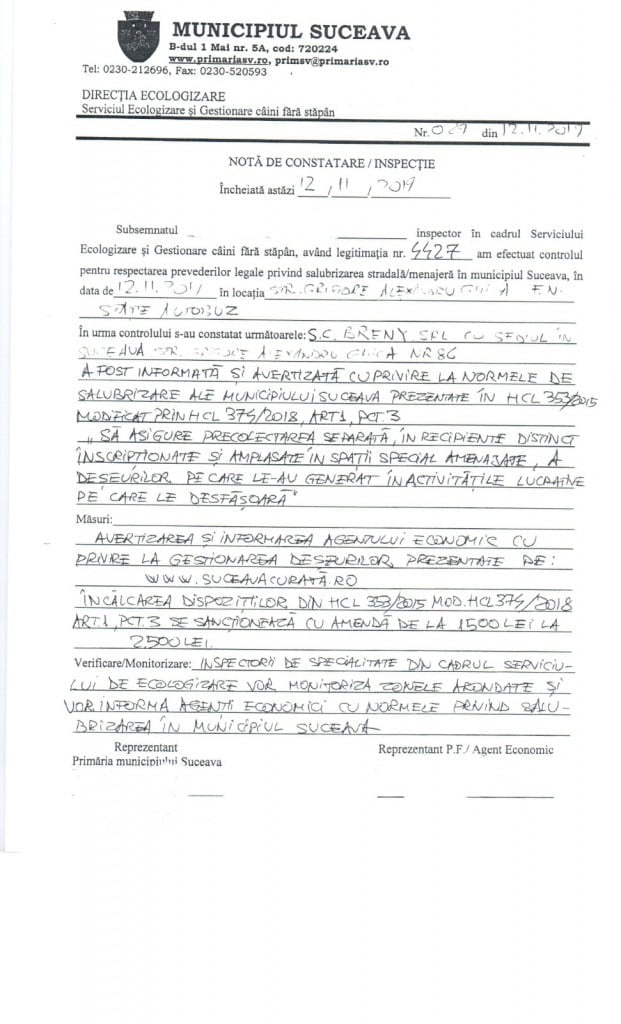 MUNICIPIUL SUCEAVA
B-dul 1 Mai nr. 5A, cod: 720224
www.primariasv.ro, primsv@primariasv.ro
Tel: 0230-212696, Fax: 0230-520593
DIRECŢIA ECOLOGIZARE
Serviciul Ecologizare şi Gestionare câini fără stăpân
Nr. 029 din 12.11.2019
NOTĂ DE CONSTATARE / INSPECŢIE
Încheiată astăzi 12 / 11 / 2019
Subsemnatul inspector în cadrul Serviciului
Ecologizare şi Gestionare câini fără stăpân, având legitimaţia nr. 4427 am efectuat controlul
pentru respectarea prevederilor legale privind salubrizarea stradală/menajeră în municipiul Suceava, în
data de 12.11.2019 în locaţia STR. GRIGORE ALEXANDRU GHICA F.N.
STAŢIE AUTOBUZ
În urma controlului s-au constatat următoarele: S.C. BRENY SRL CU SEDIUL ÎN
SUCEAVA STR. GRIGORE ALEXANDRU GHICA NR 86
A FOST INFORMATĂ ŞI AVERTIZATĂ CU PRIVIRE LA NORMELE DE
SALUBRIZARE ALE MUNICIPIULUI SUCEAVA PREZENTATE ÎN HCL 353/2015
MODIFICAT PRIN HCL 374/2018, ART1, PCT.3
„SĂ ASIGURE PRECOLECTAREA SEPARATĂ, ÎN RECIPIENTE DISTINCT
ÎNSCRIPŢIONATE ŞI AMPLASATE ÎN SPAŢII SPECIAL AMENAJATE, A
DEŞEURILOR PE CARE LE-AU GENERAT ÎN ACTIVITĂŢILE LUCRATIVE
PE CARE LE DESFĂŞOARĂ"
Măsuri:
AVERTIZAREA ŞI INFORMAREA AGENTULUI ECONOMIC CU
PRIVIRE LA GESTIONAREA DEŞEURILOR, PREZENTATE PE:
WWW.SUCEAVACURATĂ.RO
ÎNCĂLCAREA DISPOZIŢIILOR DIN HCL 353/2015 MOD. HCL 374/2018
ART.1, PCT.3 SE SANCŢIONEAZĂ CU AMENDĂ DE LA 1500 LEI LA
2500 LEI.
Verificare/Monitorizare: INSPECTORII DE SPECIALITATE DIN CADRUL SERVICIU-
LUI DE ECOLOGIZARE VOR MONITORIZA ZONELE ARONDATE ŞI
VOR INFORMA AGENŢII ECONOMICI CU NORMELE PRIVIND SALU-
BRIZAREA ÎN MUNICIPIUL SUCEAVA
Reprezentant Reprezentant P.F./ Agent Economic
Primăria municipiului Suceava